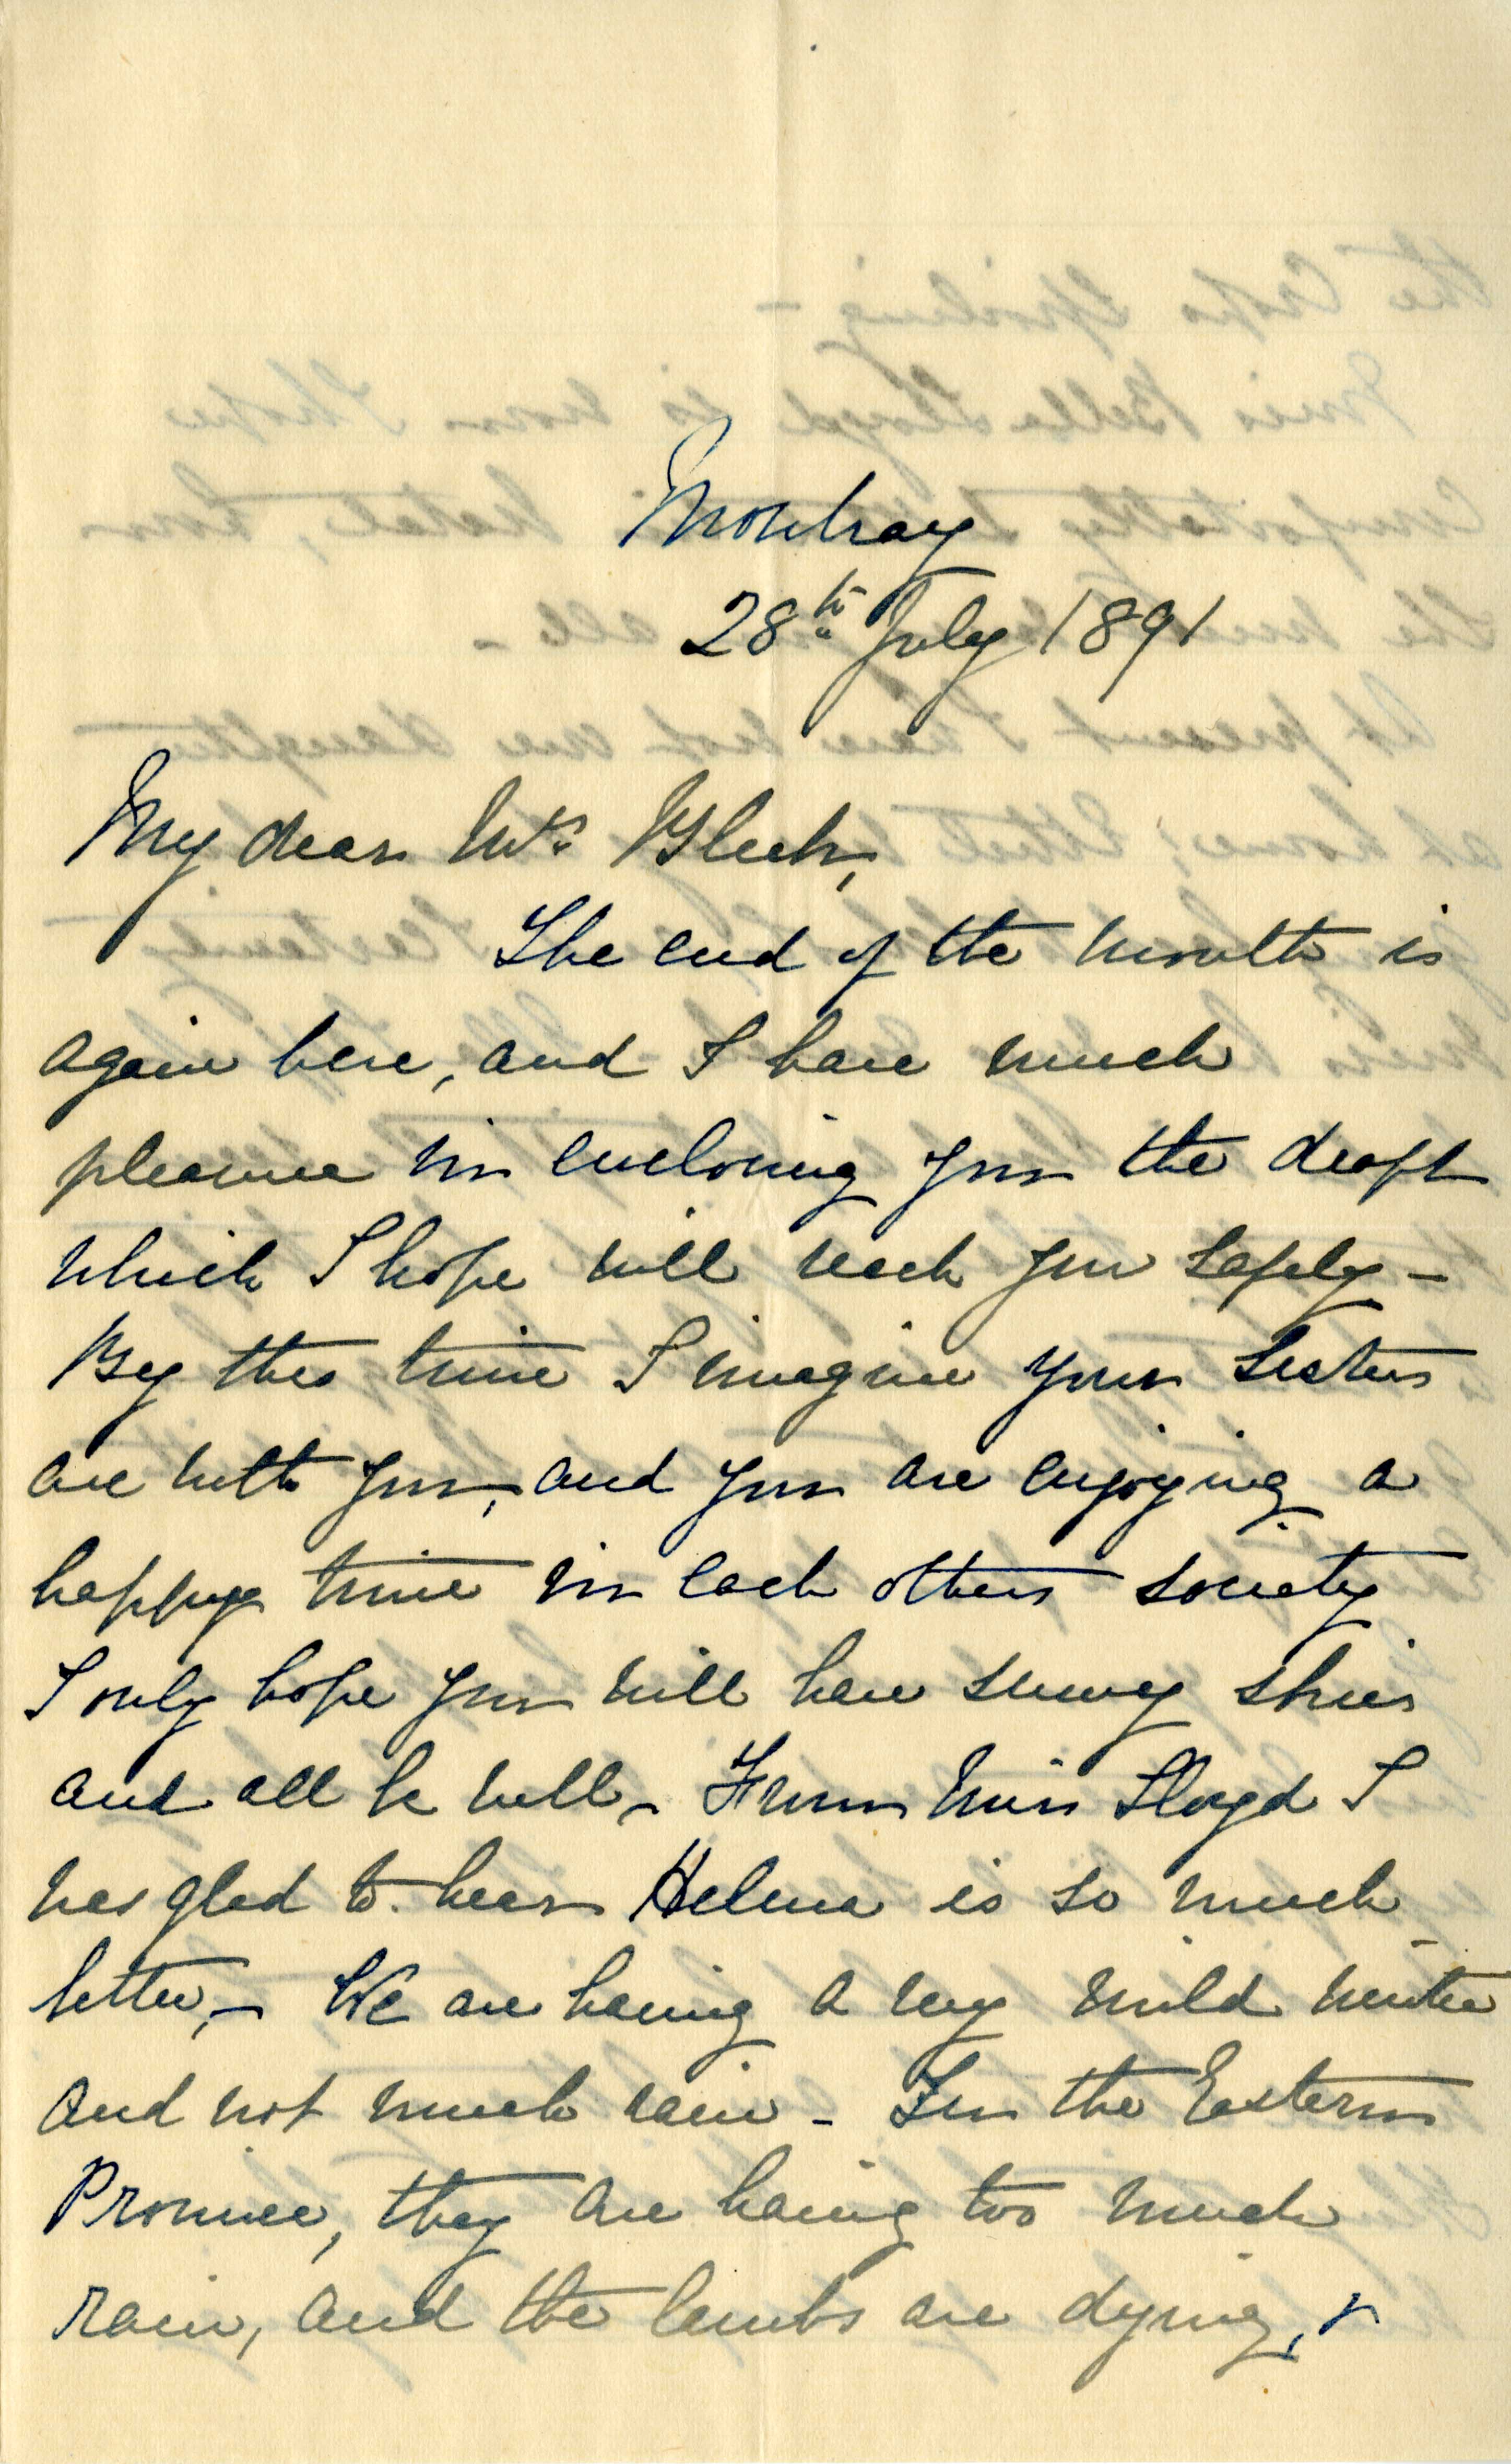 Mowbray
28th July 1891
My dear Mrs Bleek,
The end of the month is
again here, and I have much
pleasure in enclosing you the draft
which I hope will reach you safely –
By this time I imagine your sisters
are with you, and you are enjoying a
happy time in each others society
I only hope you will have sunny skies
and all be well – From Miss Lloyd I
was glad to hear Helma is so much
better, – We are having a very mild winter
and not much rain – In the Eastern
Province, they are having too much
rain, and the lambs are dying, &